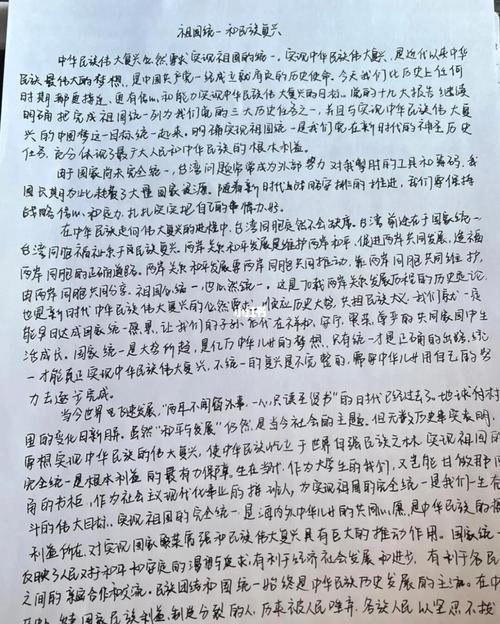 祖国统一和民族复兴
中华民族伟大复兴必然要求实现祖国的统一。实现中华民族伟大复兴,是近代以来中华
民族最伟大的梦想,是中国共产党一经成立就肩负的历史使命。今天我们比历史上任何
时期都更接近、更有信心和能力实现中华民族伟大复兴的目标。党的十九大报告继续
明确把完成祖国统一列为我们党的三大历史任务之一,并且与实现中华民族伟大复
兴的中国梦这一目标统一起来,明确实现祖国统一是我们党在新时代的神圣历史
任务,充分体现了最广大人民和中华民族的根本利益。
由于国家尚未完全统一,台湾问题常常成为外部势力对我掣肘的工具和筹码,我
国长期为此耗费了大量国家资源。随着新时代战略安排的推进,我们要保持
战略信心和定力,扎扎实实把自己的事情办好。
在中华民族走向伟大复兴的进程中,台湾同胞定然不会缺席。台湾前途在于国家统一
台湾同胞福祉系于民族复兴。两岸关系和平发展是维护两岸和平、促进两岸共同发展、造福
两岸同胞的正确道路。两岸关系和平发展要两岸同胞共同推动,靠两岸同胞共同维护,
由两岸同胞共同分享。祖国必须统一,也必然统一。这是70载两岸关系发展历程的历史定论,
也是新时代中华民族伟大复兴的必然要求。顺应历史大势,共担民族大义,我们就一定
能早日达成国家统一愿景,让我们的子孙后代在祥和、安宁、繁荣、尊严的共同家园中生
活成长。国家统一是大势所趋,是亿万中华儿女的梦想,只有统一才是正确的出路,统
一才能真正实现中华民族伟大复兴,不统一的复兴是不完整的,需要中华儿女用自己的努
力去逐步完成。
小红书
当今世界飞速发展,“两耳不闻窗外事,一心只读圣贤书”的日时代已经过去了。地球村村
里的变化日新月异。虽然“和平与发展”仍然是当今社会的主题。但无数历史事实表明,
要想实现中华民族的伟大复兴,使中华民族屹立于世界自强民族之林,实现祖国的
完全统一是根本利益的最有力保障。生在当代,作为大学生的我们,又岂能甘做那
角的书柜,作为社会主义现代化事业的接班人,为实现祖国的完全统一是我们一生奋
斗的伟大目标。实现祖国的完全统一是海内外中华儿女的共同心愿,是中华民族的
利益所在,对实现国家繁荣富强和民族伟大复兴具有巨大的推动作用。国家统一
反映了人民对和平和家庭的渴望与追求,有利于经济社会发展和进步,有利于各民
之间的亲融合作和交流。民族团结和国统一始终是中华民族历史发展的主流。在中
国家民族利益,制造分裂的人,历来被人民唾弃。各族人民以坚忍不拔